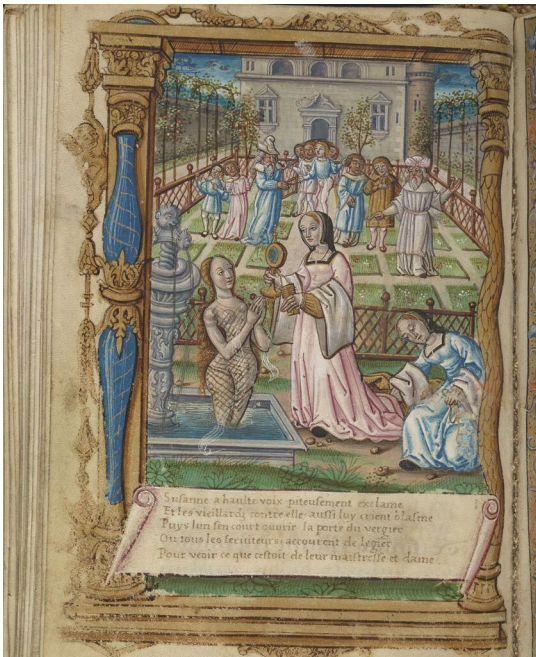 Susanne a haulte voix piteusement exclame
Et les vieillards contre elle aussi luy crient blasme
Puys lun sen court ouurir la porte du vergier
Ou tous les seruiteurs accourent de legier
Pour veoir ce que cestoit de leur maistresse et dame